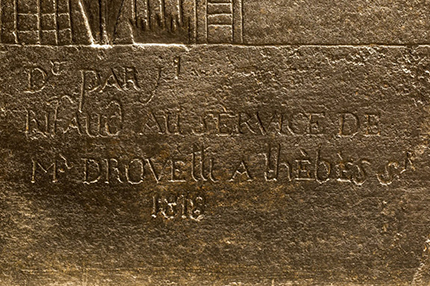 Dt PAR jl
Rifaud AU SERVICE DE
Mr DROVEtti A thèbès
1818